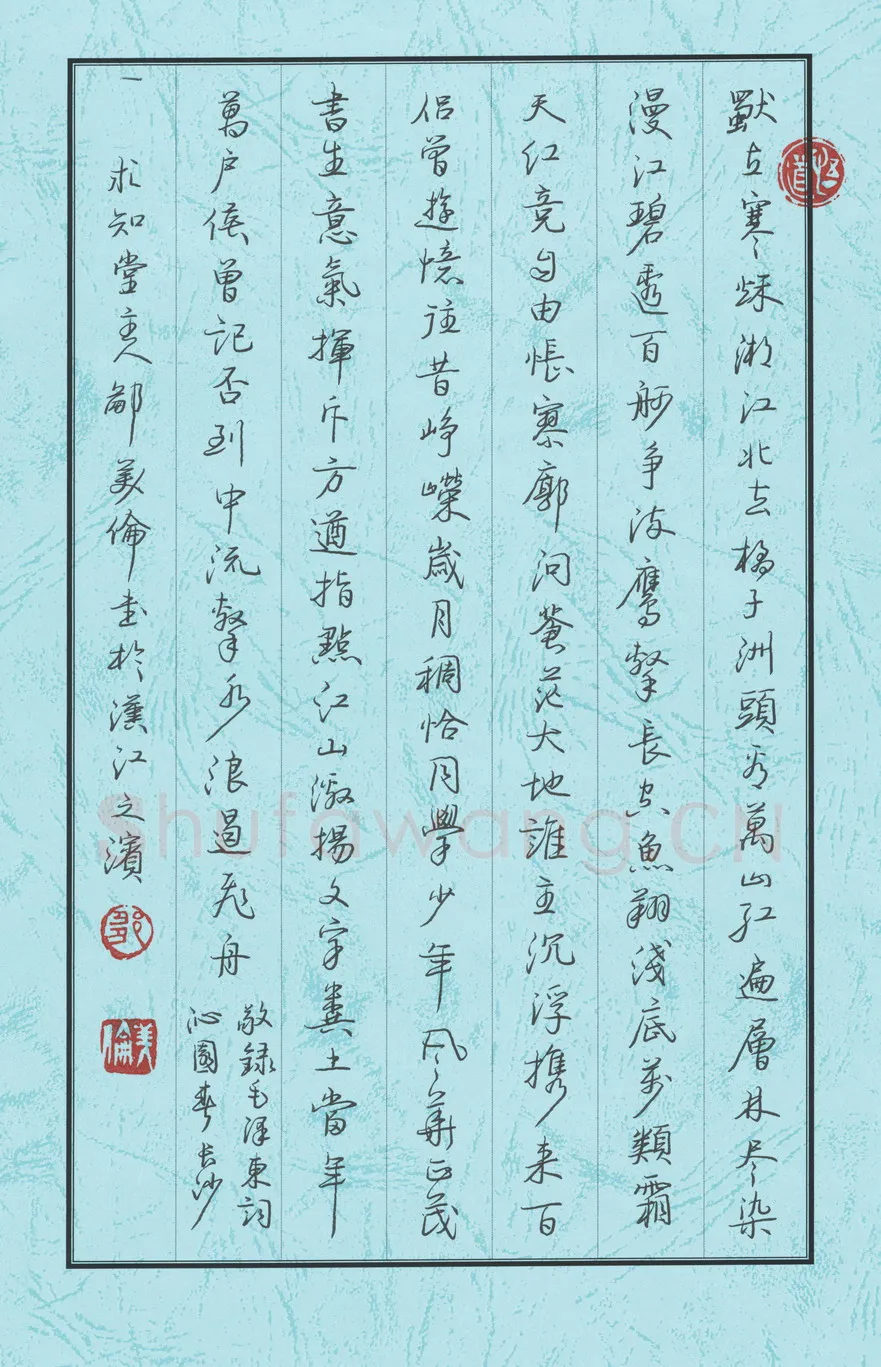 悟道
獨立寒秋湘江北去橘子洲頭看萬山红遍層林尽染
漫江碧透百舸争流鹰擊長空魚翔淺底萬類霜
天红竞自由悵寥廓问蒼茫大地誰主沉浮携来百
侣曾遊憶往昔峥嶸歲月稠恰同學少年风華正茂
書生意氣揮斥方遒指點江山激揚文字糞土當年
萬户侯曾記否到中流擊水浪遏飛舟
敬録毛泽東詞
沁園春长沙
一
求知堂主人鄒美倫書於漢江之濱
鄒
美倫
Shufawang.CN